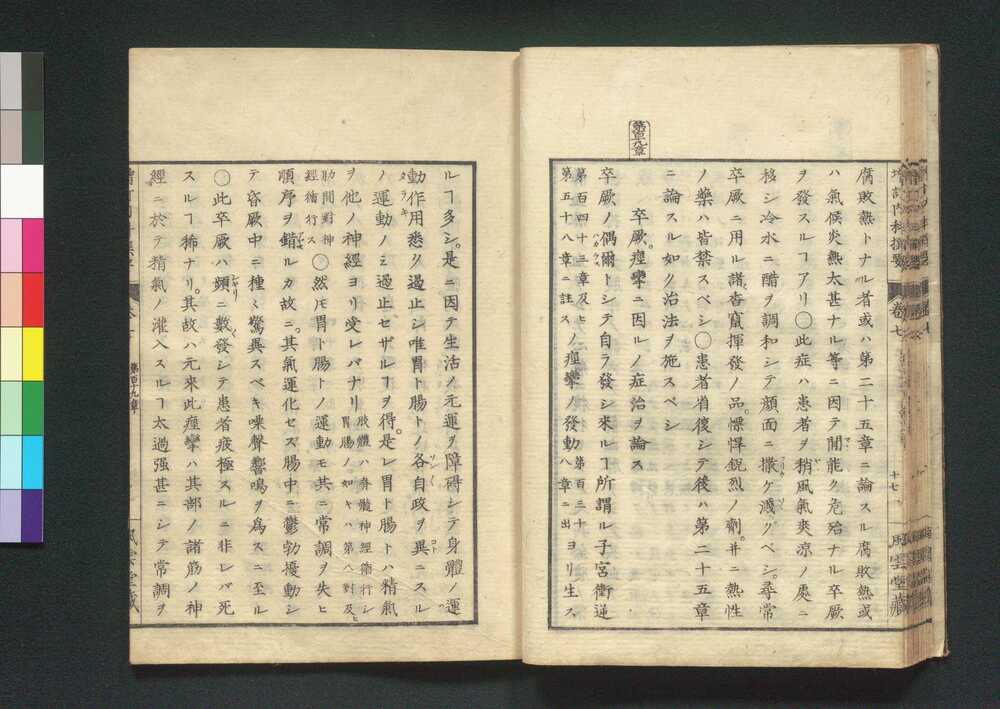 第百十九章
腐敗熱トナル者或ハ第二十五章ニ論スル腐敗熱或
ハ氣候炎熱太甚ナル等ニ因テ間能ク危殆ナル卒厥
ヲ發スルヿアリ〇此症ハ患者ヲ稍風氣爽涼ノ處ニ
移シ冷水ニ醋ヲ調和シテ顔面ニ撒ケ濺グベシ。尋常
卒厥ニ用ル諸香竄揮發ノ品。慓悍鋭烈ノ劑。并ニ熱性
ノ藥ハ皆禁スベシ〇患者省復シテ後ハ第二十五章
ニ論スル如ク治法ヲ施スベシ
卒厥。痙攣ニ因ルノ症治ヲ論ス
卒厥ノ偶爾トシテ自ラ發シ來ルヿ所謂ル子宮衝逆
第百四十三章及ヒ第百三十
第五十八章ニ註ス
ノ痙攣ノ發動
八章ニ出
ヨリ生ス
増訂内科撰要 卷七
十七
風雲堂藏
ルヿ多シ。是ニ因テ生活ノ元運ヲ障碍シテ身體ノ運
動作用悉ク遏止シ唯胃ト腸トノ各自政ヲ異ニスル
ノ運動ノミ遏止セザルヿヲ得。是レ胃ト腸トハ精氣
ヲ他ノ神經ヨリ受レバナリ
肢體ハ脊髓神經循行シ
胃腸ノ如キハ第八對及ヒ
肋間對神
經循行ス
〇然モ胃ト腸トノ運動モ其ニ常調ヲ失ヒ
順序ヲ錯ルカ故ニ。其氣運化セズ腸中ニ鬱勃擾動シ
テ昏厥中ニ種々驚異スベキ噪聲響鳴ヲ爲スニ至ル
〇此卒厥ハ頻ニ數發シテ患者疲極スルニ非レバ死
スルヿ稀ナリ。其故ハ元來此痙攣ハ其部ノ諸筋ノ神
經ニ於テ精氣ノ灌入スルヿ太過强甚ニシテ常調ヲ
第百十九章